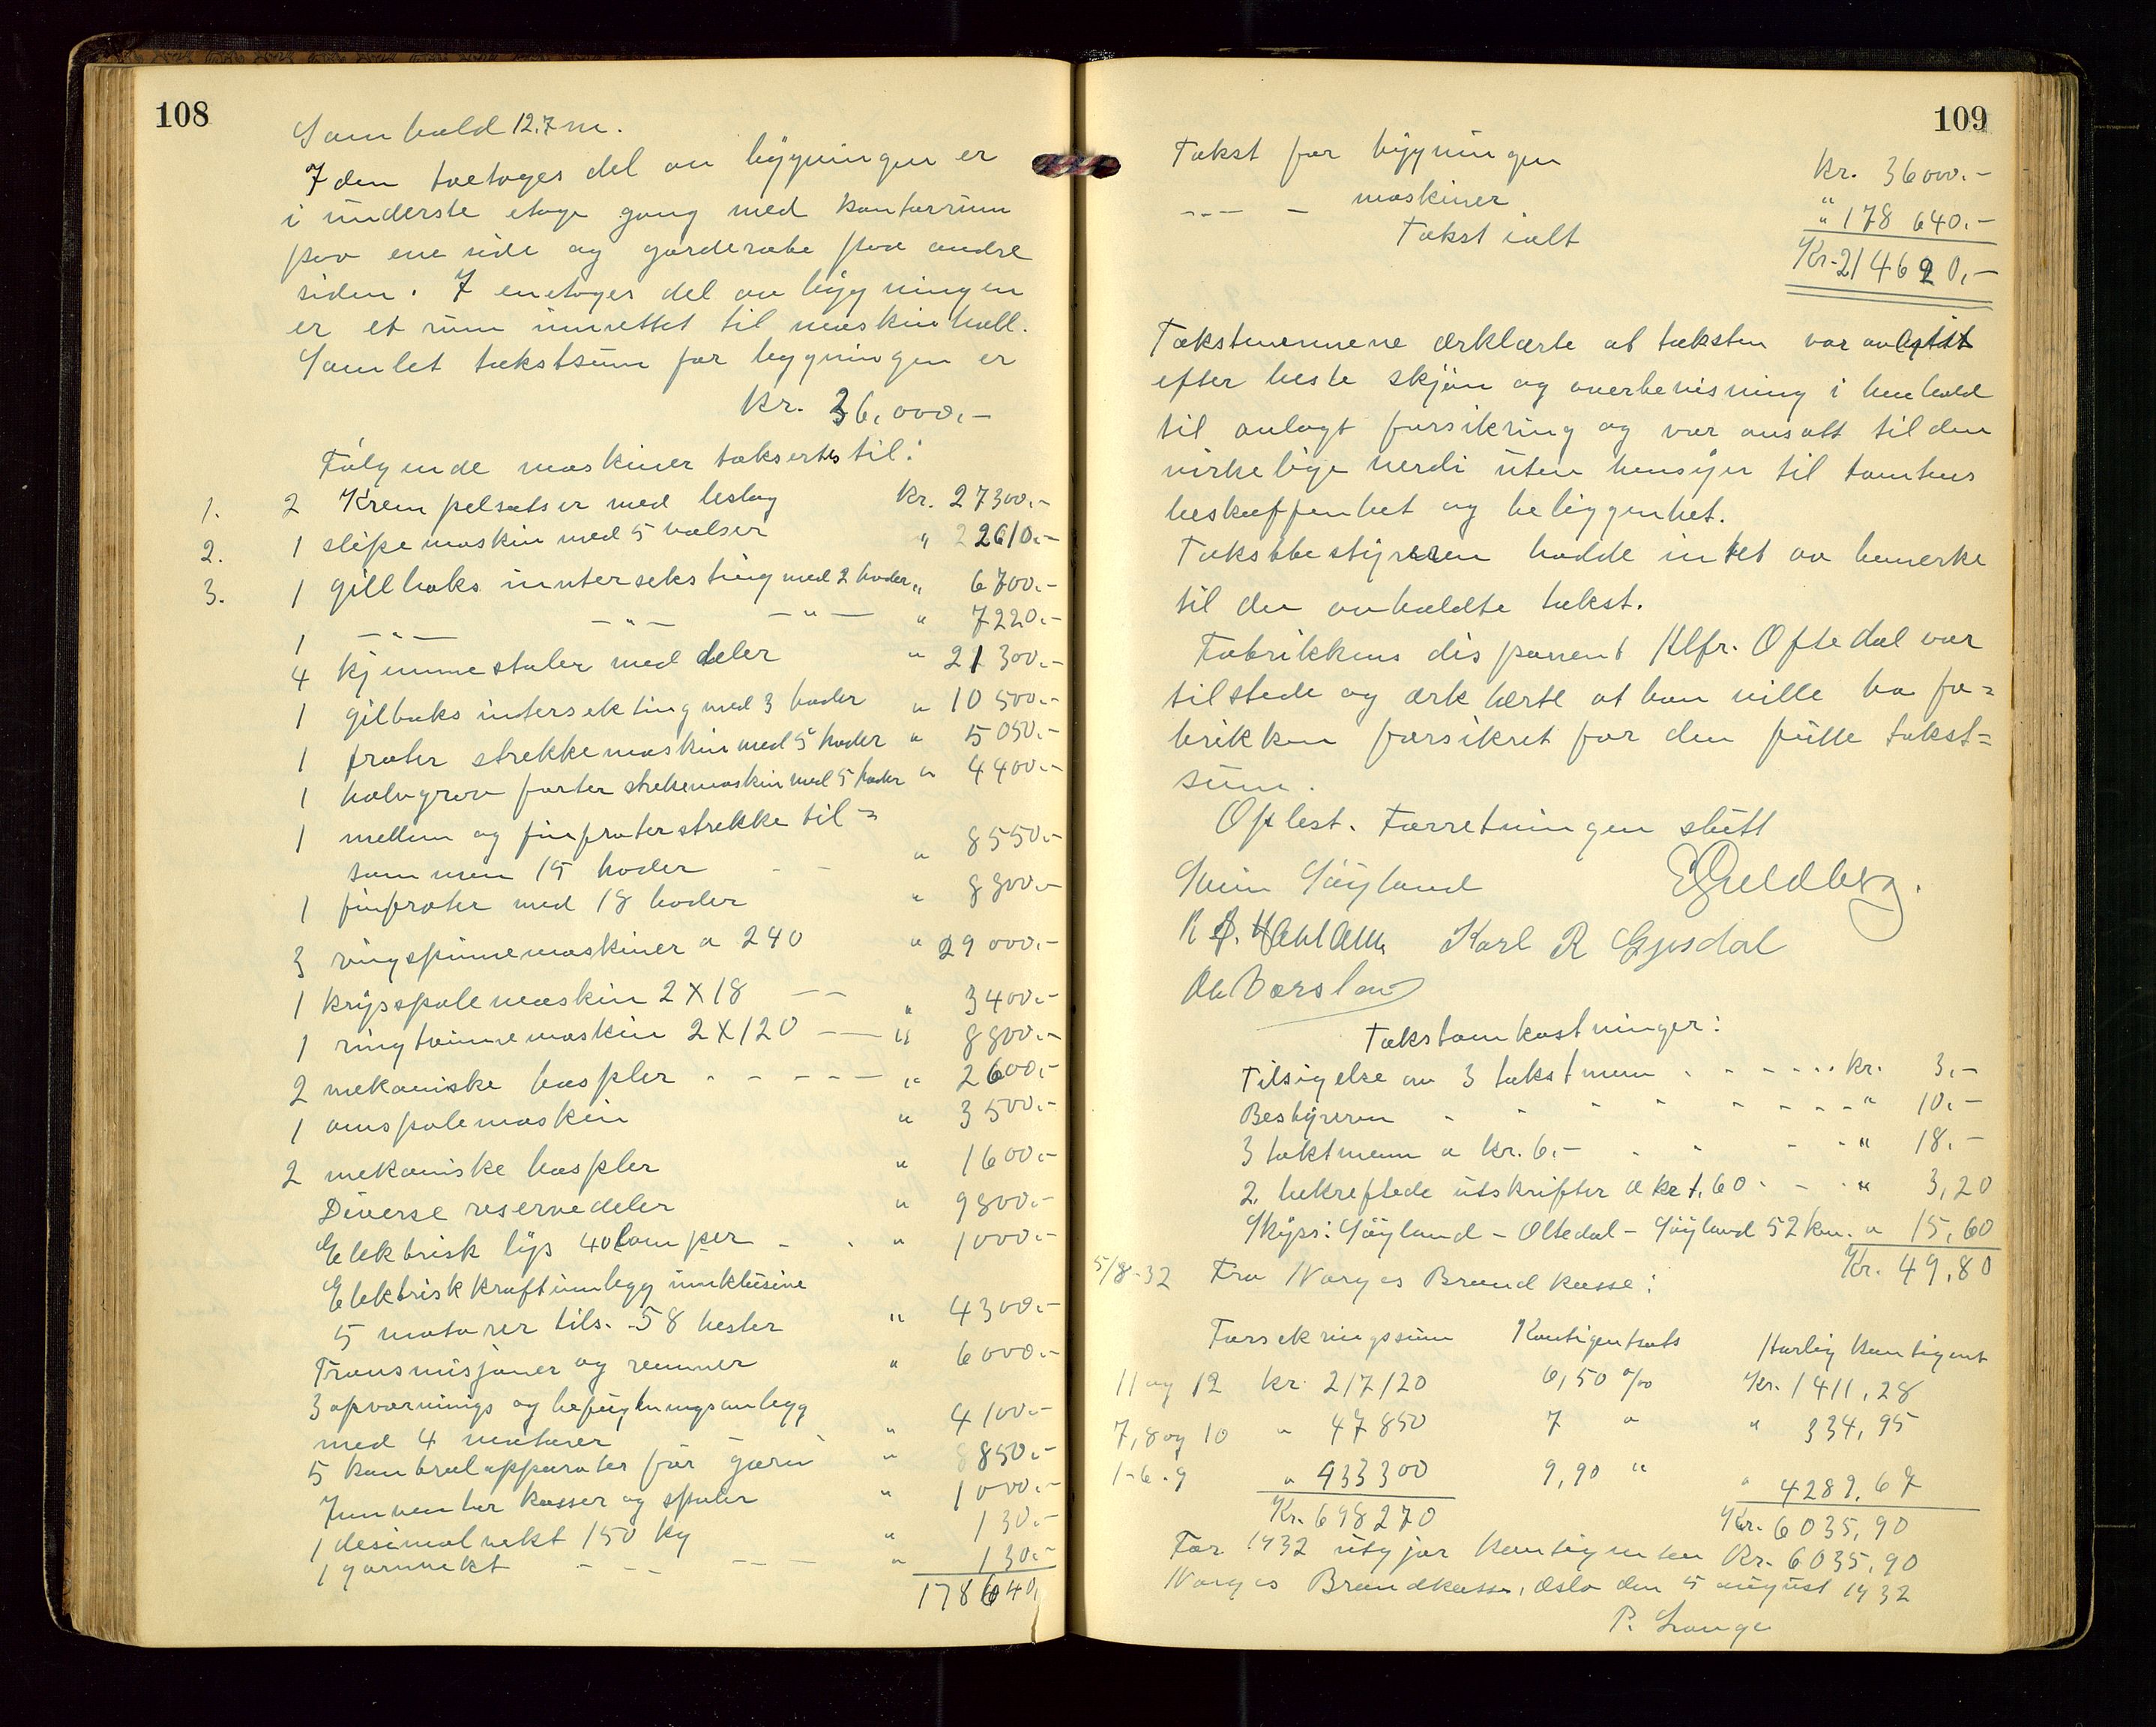 108
Samhøld 12.7 m.
I den toetages del av bygningen er
i underste etage gang med kontorrum
paa ene side og garderobe paa andre
siden. I enetages del av bygningen
er et rum innrettet til maskinhall.
Samlet takstsum for bygningen er
kr. 36.000.-
Følgende maskiner taksertes til:
1. 2 Krempelsatser med beslag kr. 27300.-
2. 1 slipemaskin med 5 valser " 22610.-
3. 1 gillboks innterseksting med 2 hoder " 6700.-
1 -"- -"- -"- " 7220.-
4 kjemmestoler med deler " 21300.-
1 gilboks interseksting med 3 hoder " 10500.-
1 froter strekkemaskin med 5 hoder " 5050.-
1 halvgrov forter strekemaskin med 5 hoder " 4400.-
1 mellem og finfroterstrekke til=
sammen 15 hoder " 8550.-
1 finfroter med 18 hoder " 8800.-
3 ringspinnemaskiner a 240 " 29000.-
1 krysspolemaskin 2 X 18 -- " 3400.-
1 ringtvinnemaskin 2 X 120 -- " 8800.-
2 mekaniske haspler - - - - - " 2600.-
1 omspolemaskin " 3500.-
2 mekaniske haspler " 1600.-
Diverse reservedeler " 9800.-
Elektrisk lys 40 lamper - - " 1000.-
Elektrisk kraftinnlegg innklusive
5 motorer tils. 58 hester " 4300.-
Transmisjoner og remmer " 6000.-
3 opvarmings og befugtningsanlegg
med 4 motorer " 4100.-
5 kontrolapparater for garn " 8850.-
Innventar kasser og spoler " 1000.-
1 desimalvekt 150 kg " 130.-
1 garnvekt - - - " 130.-
178640,
109
Takst for bygningen kr. 36000.-
--- - maskiner " 178 640.-
Takst ialt Kr. 214620.-
Takstmennene erklærte at taksten var avgitt
efter beste skjøn og overbevisning i henhold
til avlagt forsikring og var ansatt til den
virkelige verdi uten hensyn til tomtens
beskaffenhet og beliggenhet.
Takstbestyreren hadde intet av bemerke
til den avholdte takst.
Fabrikkens disponent Alfr. Oftedal var
tilstede og erklærte at han ville ha fa=
brikken forsikret for den fulle takst=
sum.
Oplest. Forretningen slutt
Søyland E Gueldberg.
Karl R Gjesdal
Takstomkostninger:
Tilsigelse av 3 takstmenn . - - - .. kr. 3.-
Bestyreren - - - - - - - " 10.-
3 taktmenn a kr. 6.- . - - - " 18.-
2 bekreftede utskrifter a kr 1.60 - - - " 3,20
Skyss: Søyland - Oltedal - Søyland 52 km. " 15,60
Kr. 49,80
5/8-32 Fra Norges Brandkasse:
Forsikringssum Kontigentsats Aarlig kontigent
11 og 12 kr. 217120 6,50 ‰ Kr. 1411,28
7, 8 og 10 " 47850 7 " " 334,95
1-6. 9 " 433300 9,90 " " 4289,67
Kr. 698270 Kr. 6035,90
For 1932 utgjør kontigenten Kr. 6035,90
Norges Brandkasse, Oslo den 5 august 1932
P. Lange